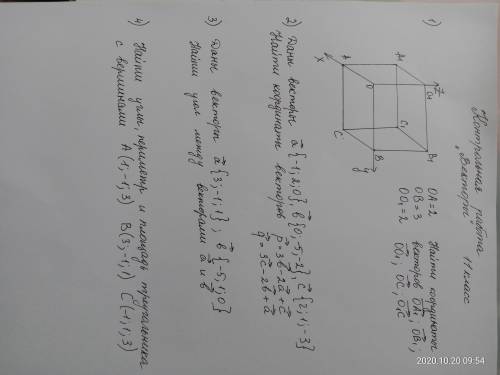 Контрольная работа 11 класс
"Векторы"
1)
OA=2
OB=3
OO₁=2
Найти координаты
векторов OA₁; OB₁;
OO₁; OC; O₁C
A
A₁
O
O₁
Z
C
C₁
B
B₁
X
y
2) Даны векторы a{-1;2;0}, b{0;-5;-2}, c{2;1;-3}
Найти координаты векторов p=3b-2a+c
q=3c-2b+a
3) Даны векторы a{3;-1;1}; b{-5;1;0}
Найти угол между векторами a и b
4) Найти углы, периметр и площадь треугольника
с вершинами A(1;-1;3) B(3;-1;1) C(-1;1;3)
2020.10.20 09:54